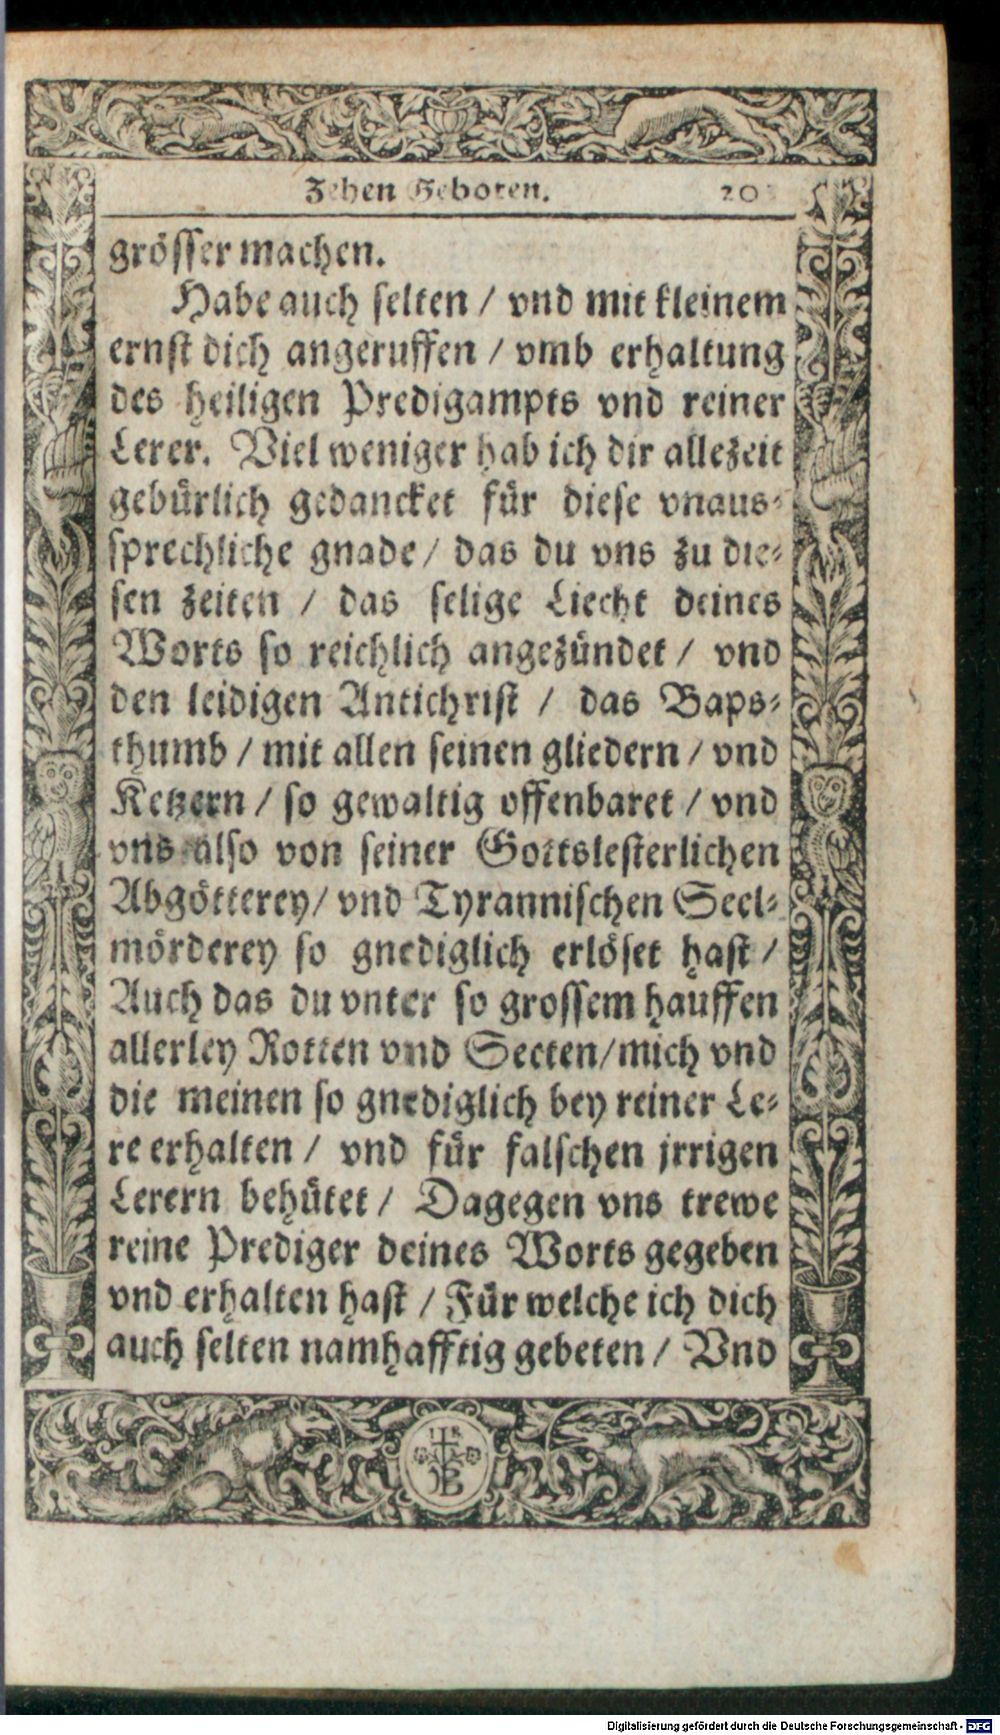 Zehen Geboten. 20
grösser machen.
Habe auch selten / vnd mit kleinem
ernst dich angeruffen / vmb erhaltung
des heiligen Predigampts vnd reiner
Lerer. Viel weniger hab ich dir allezeit
gebürlich gedancket für diese vnaus-
sprechliche gnade / das du vns zu die-
sen zeiten / das selige Liecht deines
Worts so reichlich angezündet / vnd
den leidigen Antichrist / das Baps-
thumb / mit allen seinen gliedern / vnd
Ketzern / so gewaltig offenbaret / vnd
vns also von seiner Gottslesterlichen
Abgötterey / vnd Tyrannischen Seel-
mörderey so gnediglich erlöset hast /
Auch das du vnter so grossem hauffen
allerley Rotten vnd Secten / mich vnd
die meinen so gnediglich bey reiner Le-
re erhalten / vnd für falschen jrrigen
Lerern behütet / Dagegen vns trewe
reine Prediger deines Worts gegeben
vnd erhalten hast / Für welche ich dich
auch selten namhafftig gebeten / Vnd
Digitalisierung gefördert durch die Deutsche Forschungsgemeinschaft - DFG